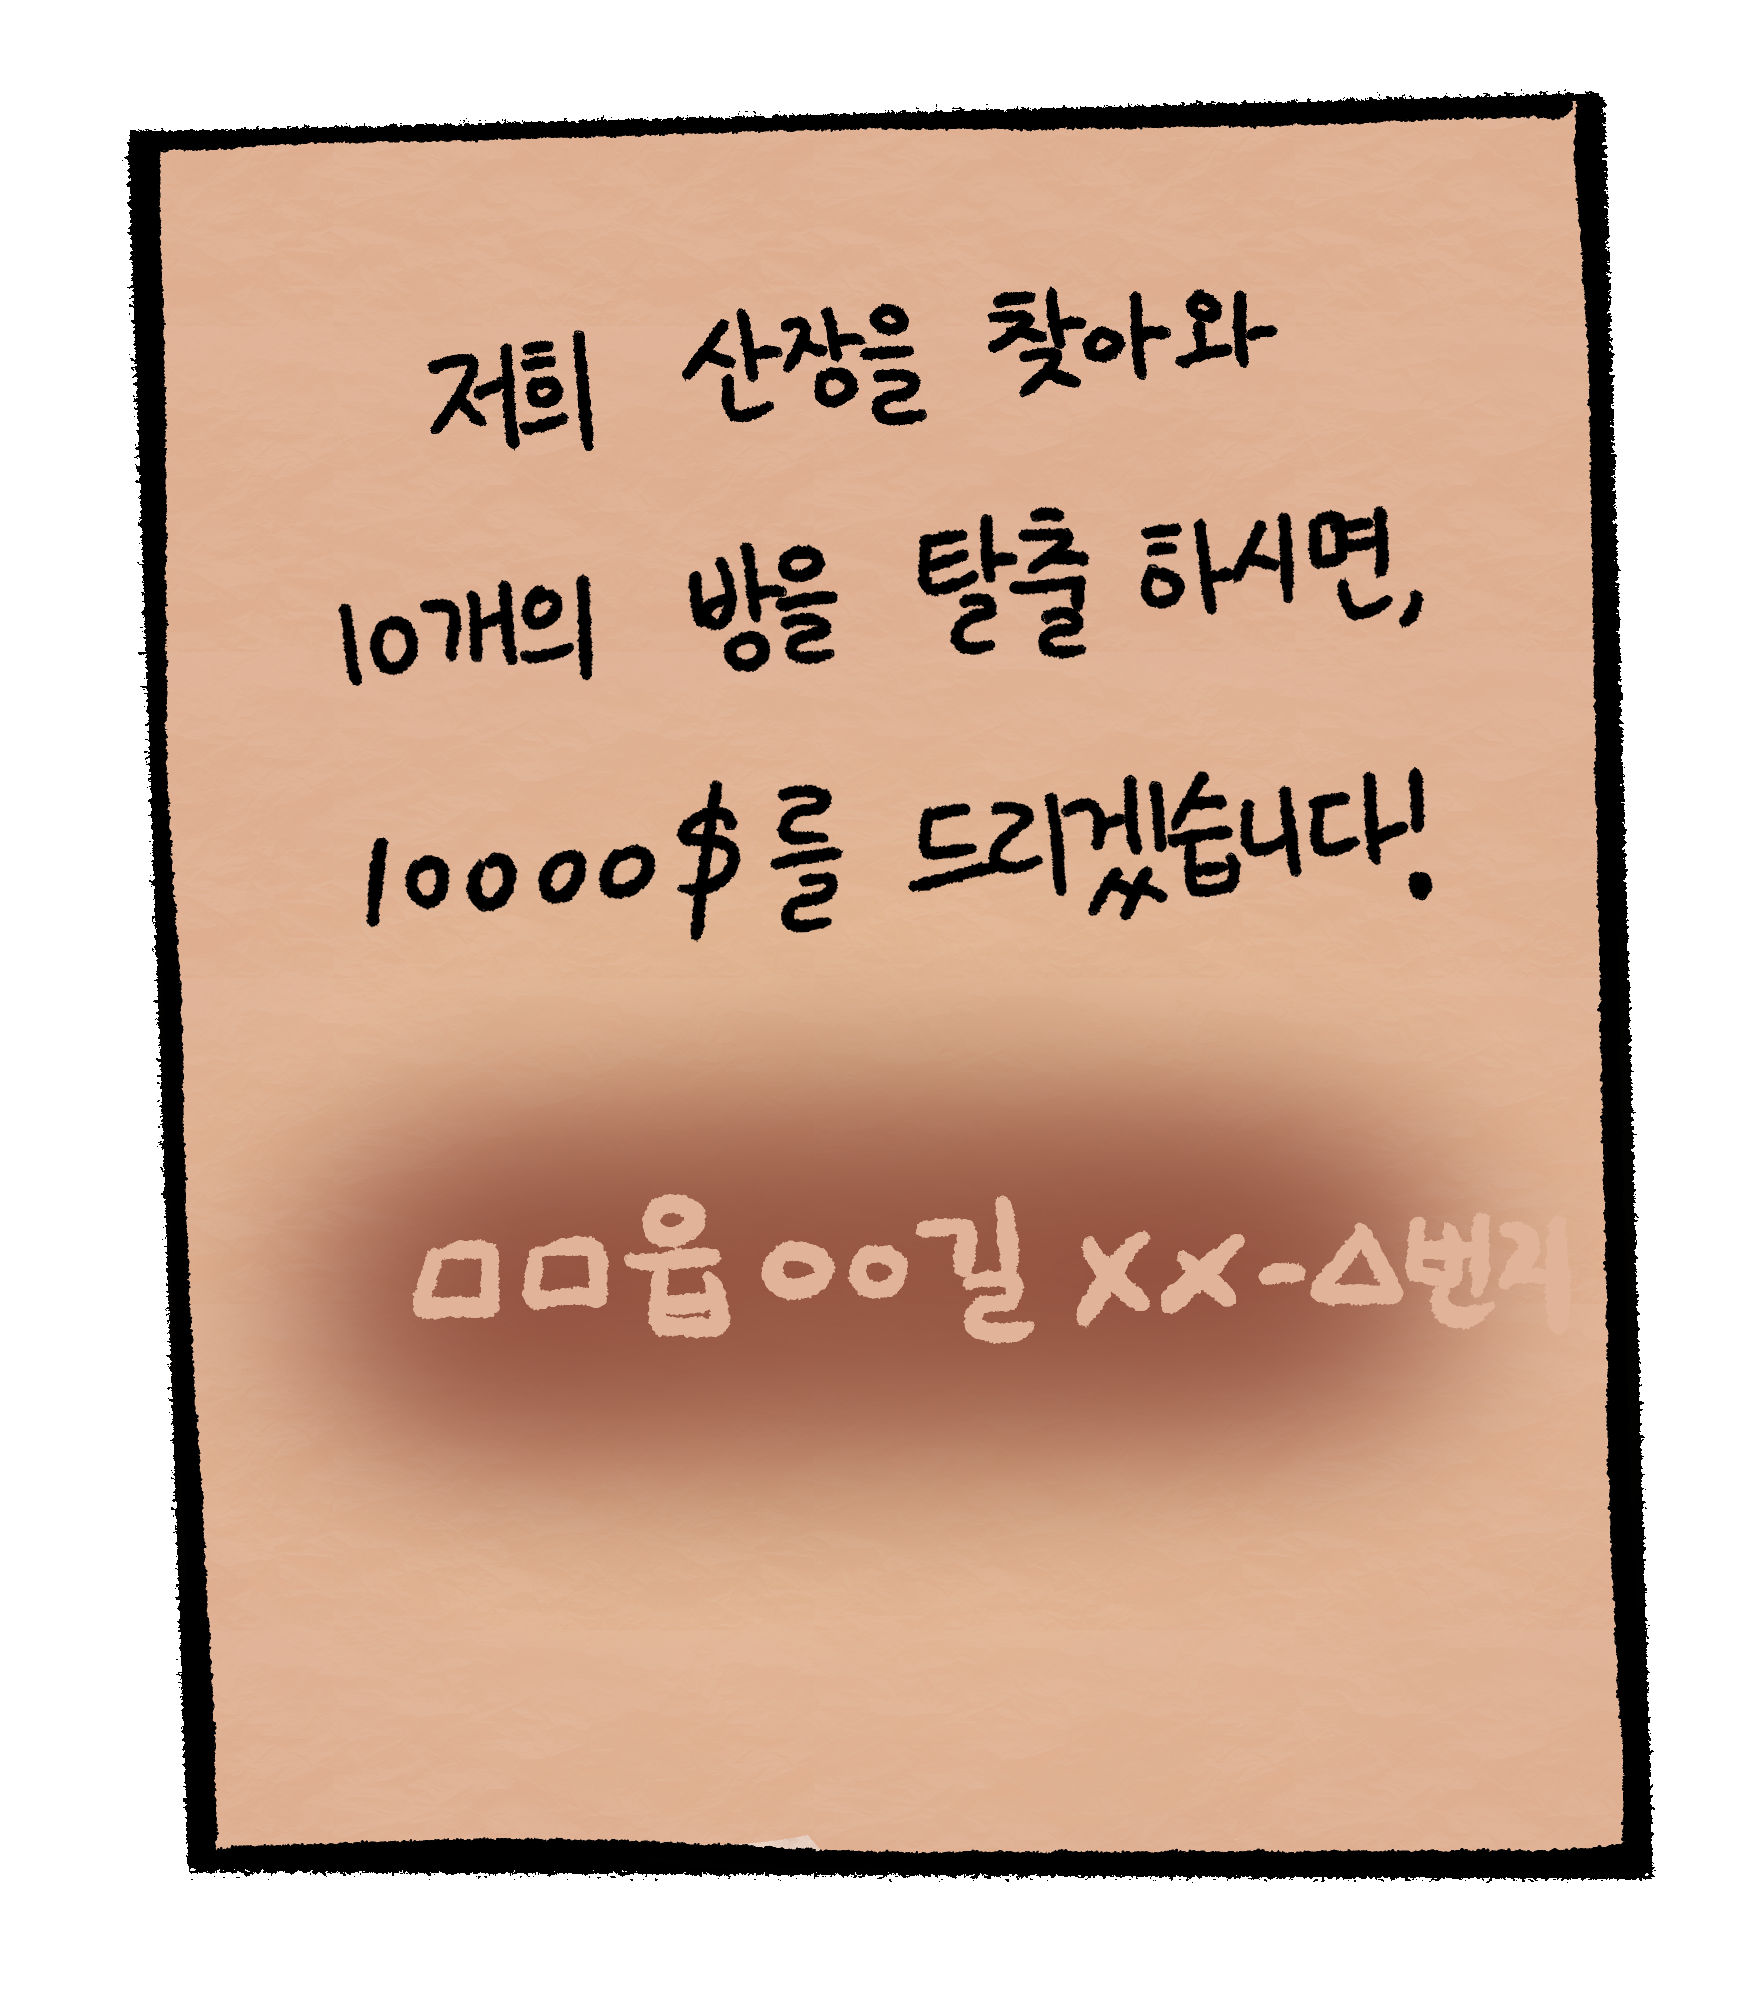 저희 산장을 찾아와
10개의 방을 탈출 하시면,
10000$를 드리겠습니다!
□□읍 ○○길 XX-△번지